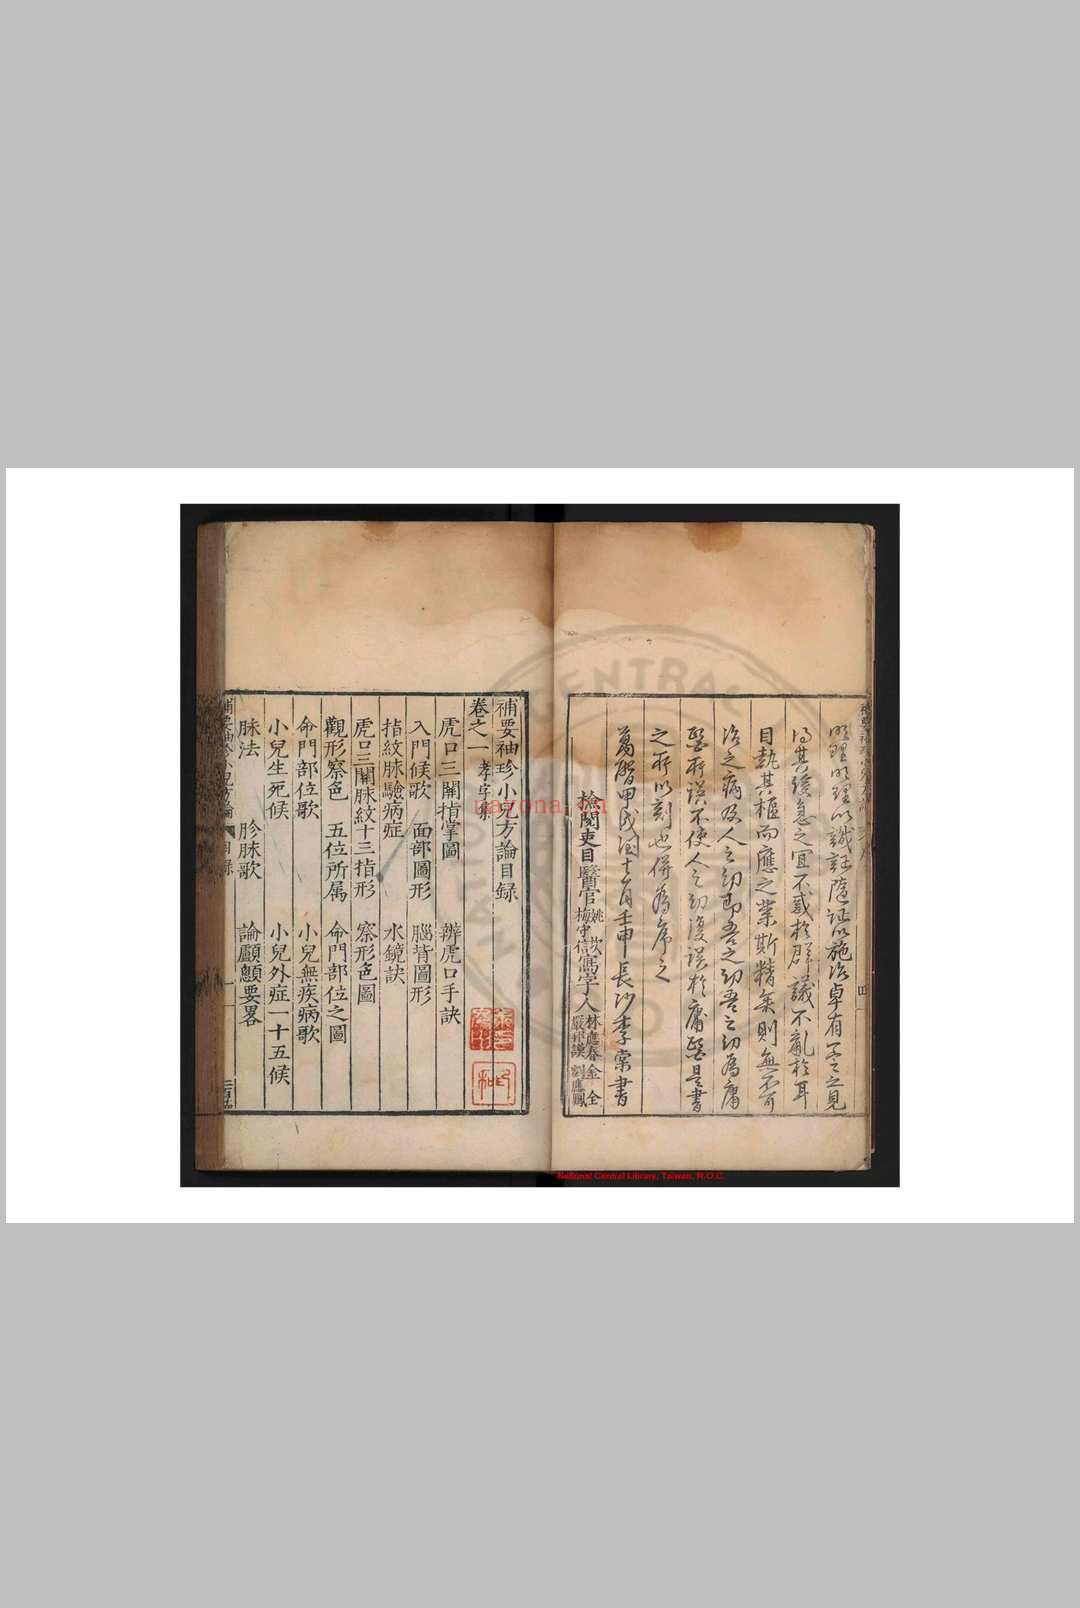 明理明理以識証隨証以施治卓有一定之見
得其緩急之宜不惑於群議不亂於耳
目執其樞而應之業斯精矣則無不可
治之病及人之幼即吾之幼吾之幼為庸
醫所誤不使人之幼復誤於庸醫是書
之所以刻也併為序之
萬曆甲戌
十
月壬申長沙李棠書
檢閱吏目醫官姚
梅守信寫字人林應春金全
劉應鳳
補要袖珍小兒方論目録
卷之一 孝字集
虎口三關指掌圖 辨虎口手訣
入門候歌 面部圖形 腦背圖形
指紋脉驗病症 水鏡訣
虎口三關脉紋十三指形 察形色圖
觀形察色 五位所属 命門部位之圖
命門部位歌 小兒無疾病歌
小兒生死候 小兒外症一十五候
脉法 胗脉歌 論顱顖要畧
補要袖珍小兒方論 目録 一
CENTRAL
nayona.cn
National Central Library, Taiwan, R.O.C.